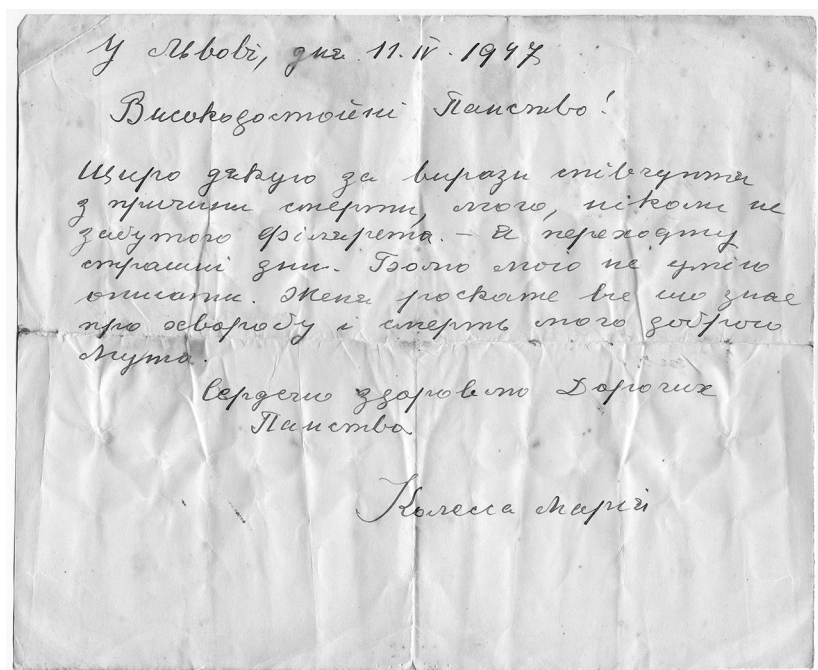 У Львові, дня 11.IV.1947
Високодостойні Панство!
Щиро дякую за вирази співчуття
з причини смерти, мого, ніколи не
забутого Філярета. – Я переходжу
страшні дни. Болю мого не умію
описати. Женя роскаже все що знає
про хворобу і смерть мого доброго
Мужа.
Сердечно здоровлю Дорогих
Панства
Колесса Марія